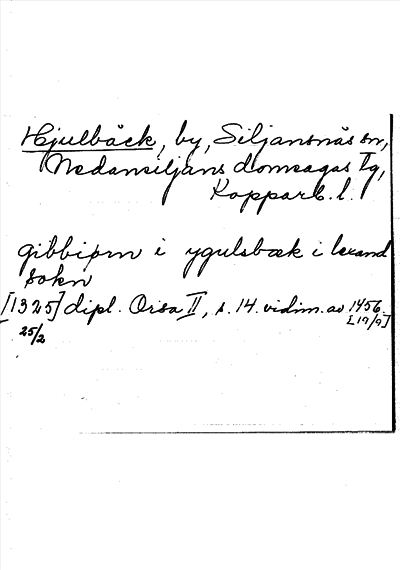 Hjulbäck, by, Siljansnäs sn,
Nedansiljans domsagas tg,
Kopparb. l.
gibbiørn i ygulsbæk i lexand
sokn
[1325] dipl. Orsa II, s. 14. vidim. av 1456
25/2 [19/9]